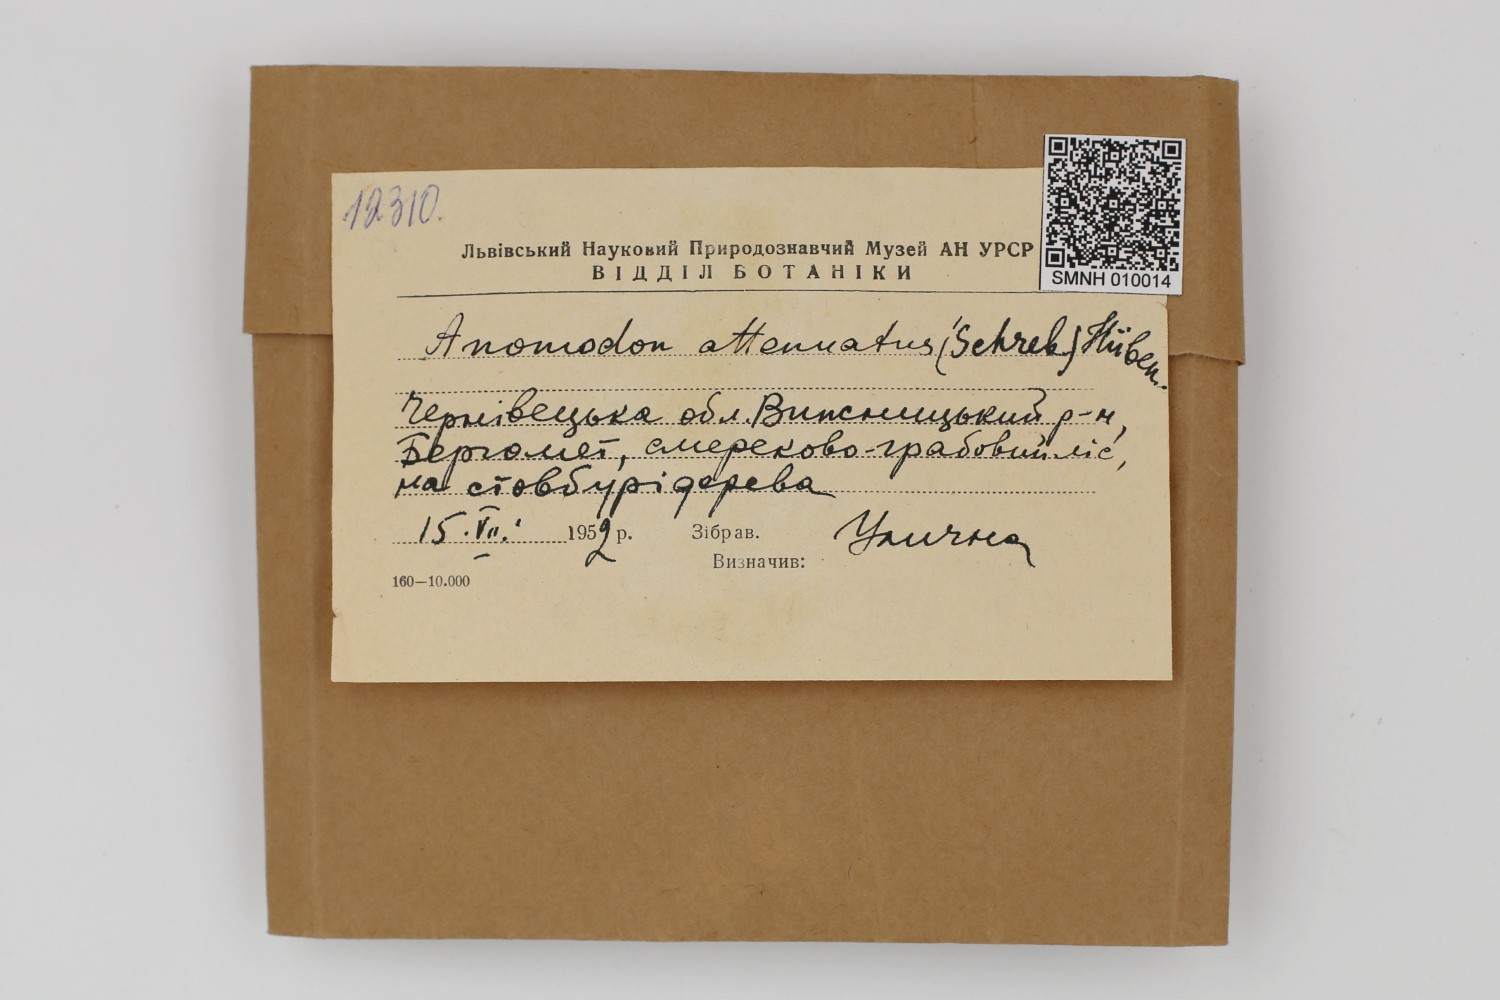 12310.
Львівський Науковий Природознавчий Музей АН УРСР
ВІДДІЛ БОТАНІКИ
SMNH 010014
Anomodon attenuatus (Schreb) Hüben.
Чернівецька обл. Вижницький р-н,
Бергомет, смереково-грабовий ліс,
на стовбурі дерева
15. VII. 1952 р. Зібрав. Улична
Визначив:
160—10.000